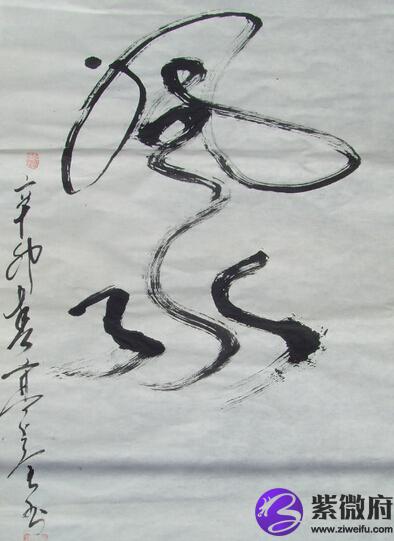 风水
辛卯
紫微府
www.ziweifu.com